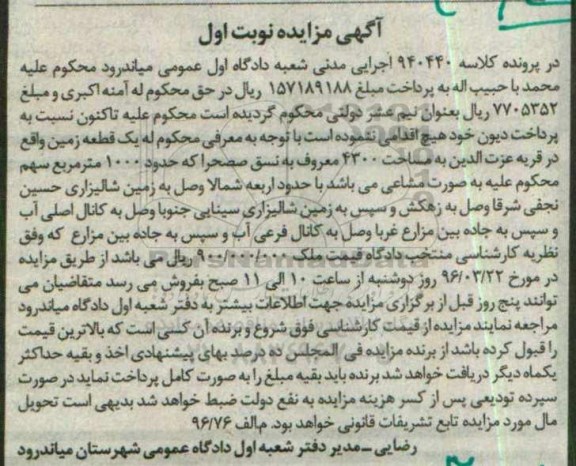 آگهی مزایده نوبت اول
در پرونده کلاسه ۹۴۰۴۴۰ اجرایی مدنی شعبه دادگاه اول عمومی میاندرود محکوم علیه
محمد با حبیب اله به پرداخت مبلغ ۱۵۷۱۸۹۱۸۸ ریال در حق محکوم له آمنه اکبری و مبلغ
۷۷۰۵۳۵۲ ریال بعنوان نیم عشر دولتی محکوم گردیده است محکوم علیه تاکنون نسبت به
پرداخت دیون خود هیچ اقدامی ننموده است با توجه به معرفی محکوم له یک قطعه زمین واقع
در قریه عزت الدین به مساحت ۴۳۰۰ معروف به نسق صصحرا که حدود ۱۰۰۰ مترمربع سهم
محکوم علیه به صورت مشاعی می باشد با حدود اربعه شمالا وصل به زمین شالیزاری حسین
نجفی شرقا وصل به زهکش و سپس به زمین شالیزاری سینایی جنوبا وصل به کانال اصلی آب
و سپس به جاده بین مزارع غربا وصل به کانال فرعی آب و سپس به جاده بین مزارع که وفق
نظریه کارشناسی منتخب دادگاه قیمت ملک ۹۰۰/۰۰۰/۰۰۰ ریال می باشد از طریق مزایده
در مورخ ۹۶/۰۳/۲۲ روز دوشنبه از ساعت ۱۰ الی ۱۱ صبح بفروش می رسد متقاضیان می
توانند پنج روز قبل از برگزاری مزایده جهت اطلاعات بیشتر به دفتر شعبه اول دادگاه میاندرود
مراجعه نمایند مزایده از قیمت کارشناسی فوق شروع و برنده آن کسی است که بالاترین قیمت
را قبول کرده باشد از برنده مزایده فی المجلس ده درصد بهای پیشنهادی اخذ و بقیه حداکثر
یکماه دیگر دریافت خواهد شد برنده باید بقیه مبلغ را به صورت کامل پرداخت نماید در صورت
سپرده تودیعی پس از کسر هزینه مزایده به نفع دولت ضبط خواهد شد بدیهی است تحویل
مال مورد مزایده تابع تشریفات قانونی خواهد بود. م‌الف ۹۶/۷۶
رضایی – مدیر دفتر شعبه اول دادگاه عمومی شهرستان میاندرود